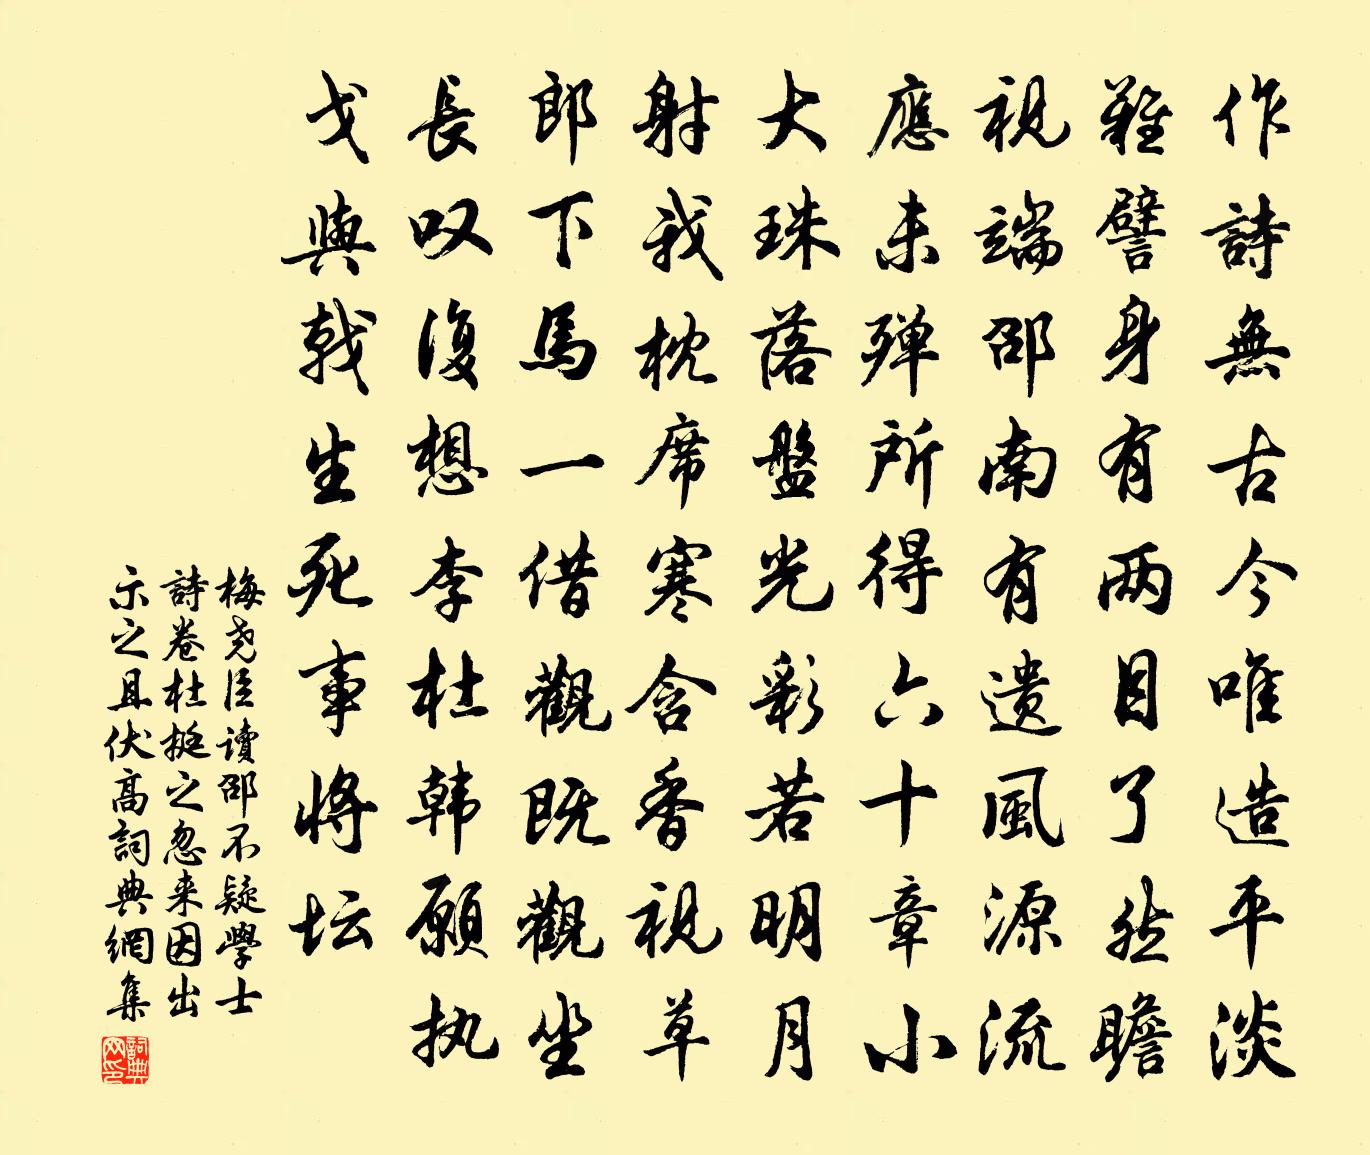 作詩無古今唯造平淡
難譬身有两目了然瞻
視端邵南有遗風源流
應未殫所得六十章小
大珠落盤光彩若明月
射我枕席寒含香視草
郎下馬一借觀既觀坐
長叹復想李杜韩願执
戈與戟生死事將坛
梅尧臣读邵不疑學士
詩卷杜挺之忽来因出
示之且伏高詞典網集
詞典网印